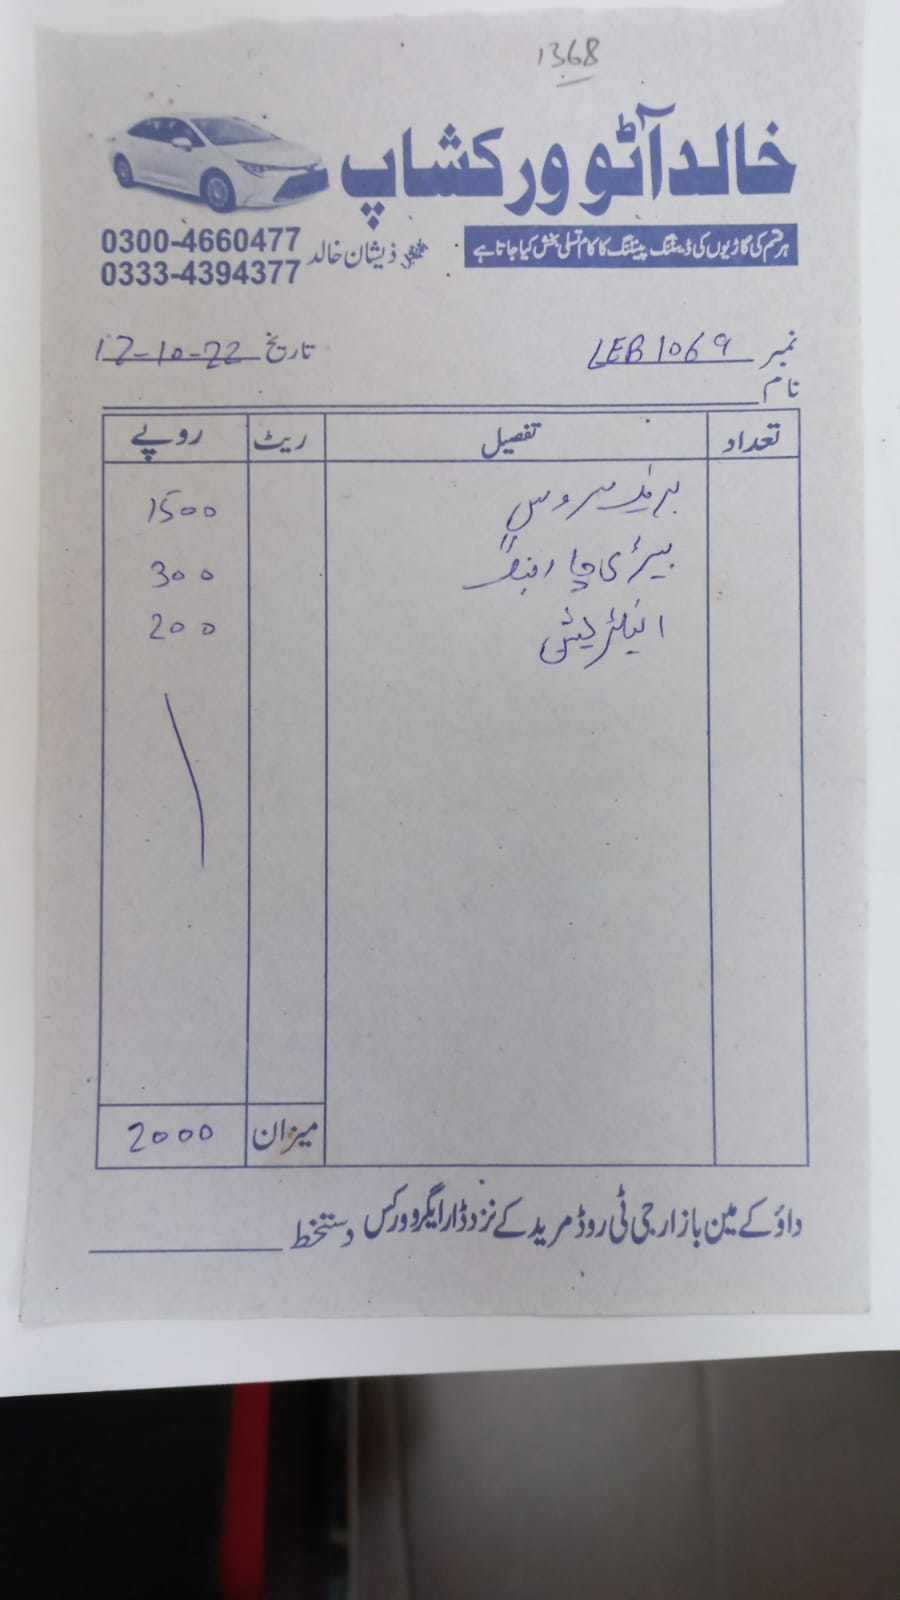 1368
خالد آٹو ورکشاپ
ہر قسم کی گاڑیوں کی ڈینٹنگ پینٹنگ کا کام تسلی بخش کیا جاتا ہے
ذیشان خالد
0300-4660477
0333-4394377
نمبر LEB 1069 تاریخ 12-10-22
نام
تعداد تفصیل ریٹ روپے
بریک سروس 1500
بیٹری چارجنگ 300
الیکٹریشن 200
میزان 2000
داؤ کے مین بازار جی ٹی روڈ مریدکے نزد ڈار ایگرو ورکس دستخط